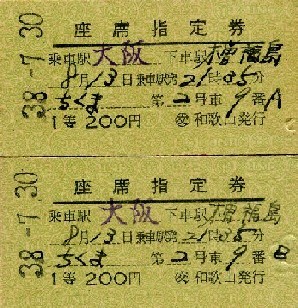 38-7.30
座席指定券
乗車駅 大阪 下車駅 木曽福島
8月13日乗車駅発21時05分
ちくま 第2号車9番A
1等 200円 和歌山発行
38-7.30
座席指定券
乗車駅 大阪 下車駅 木曽福島
8月13日乗車駅発21時05分
ちくま 第2号車9番B
1等 200円 和歌山発行